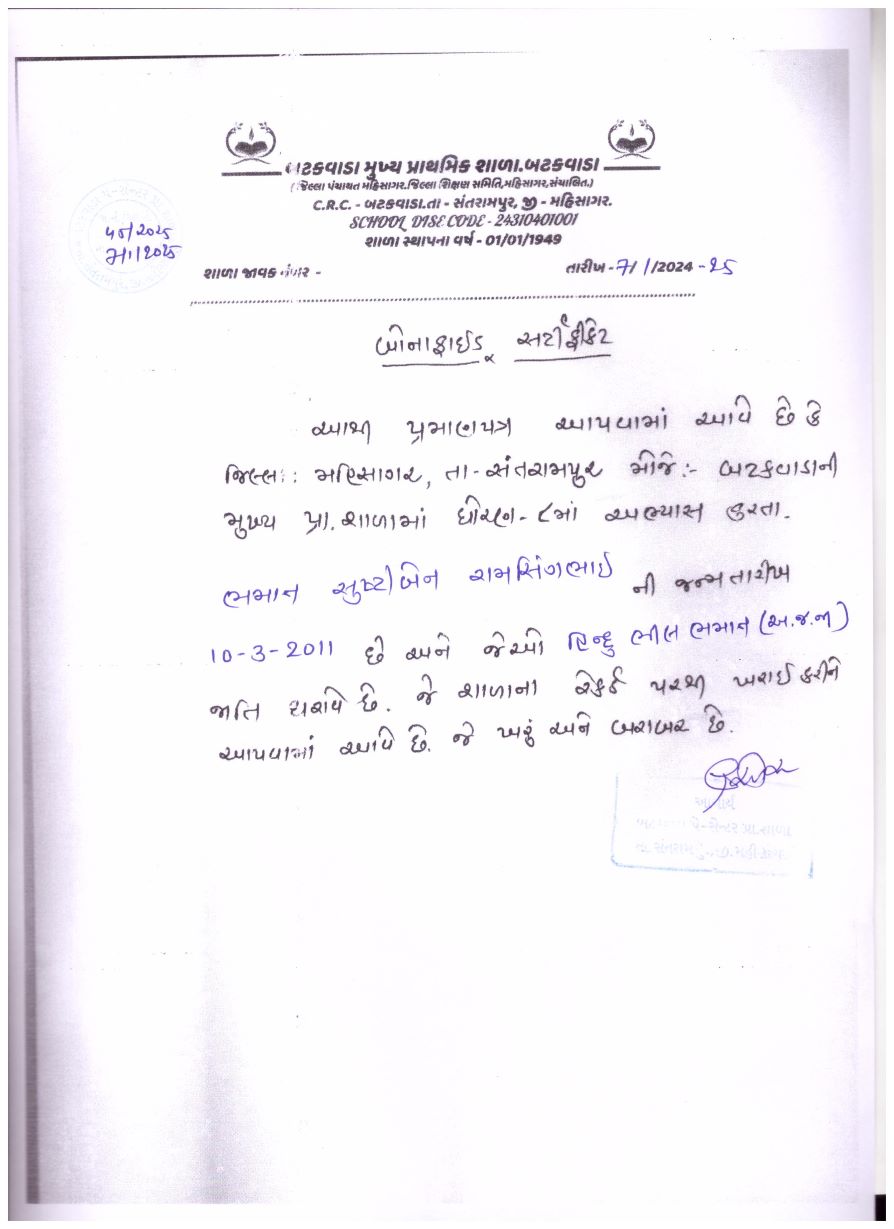 બટકવાડા મુખ્ય પ્રાથમિક શાળા.બટકવાડા
(જિલ્લા પંચાયત મહિસાગર.જિલ્લા શિક્ષણ સમિતિ,મહિસાગર,સંચાલિત.)
C.R.C. - બટકવાડા.તા - સંતરામપુર, જી - મહિસાગર.
SCHOOL DISE CODE - 24310401001
શાળા સ્થાપના વર્ષ - 01/01/1949
45/2025
7/1/2025
શાળા જાવક નંબર -
તારીખ - 7/ 1/2024 - 25
બોનાફાઈડ સર્ટીફીકેટ
આથી પ્રમાણપત્ર આપવામાં આવે છે કે
જિલ્લા : મહિસાગર, તા-સંતરામપુર મોજે:- બટકવાડાની
મુખ્ય પ્રા. શાળામાં ધોરણ - ૮માં અભ્યાસ કરતા.
ભમાત સુષ્ટીબેન રામસિંગભાઈ ની જન્મ તારીખ
10-3-2011 છે અને જેઓ હિન્દુ ભીલ ભમાત (અ.જ.જા)
જાતિ ધરાવે છે. જે શાળાના રેકર્ડ પરથી ખરાઈ કરીને
આપવામાં આવે છે. જે ખરું અને બરાબર છે.
આચાર્ય
પે-સેન્ટર પ્રા.શાળા